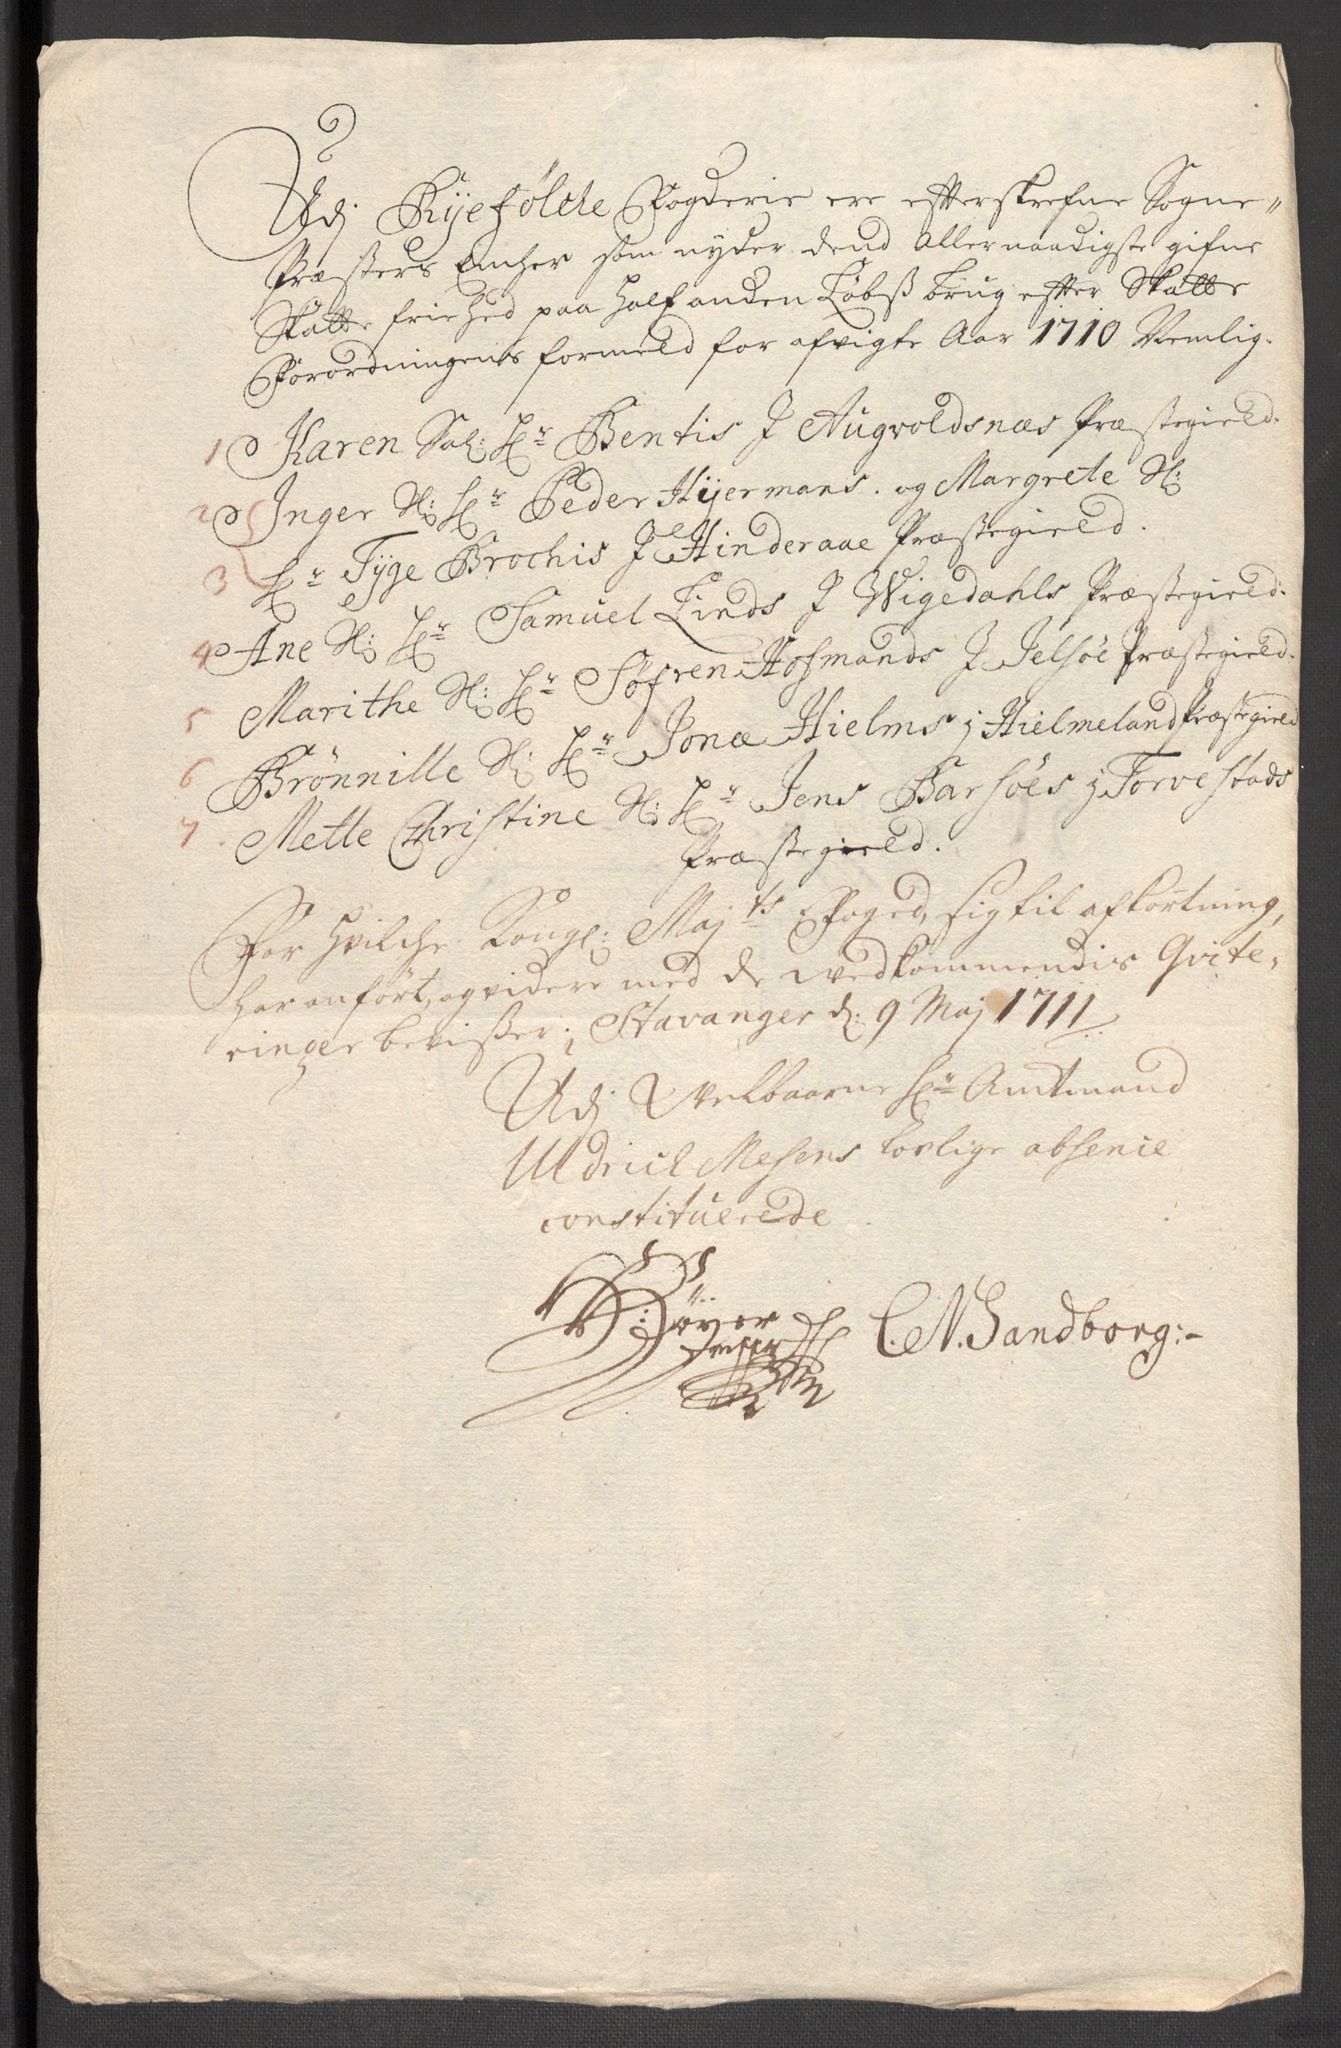 Udj Ryefölcke Fogderie ere efterskrefne Sogne=
Præsters Encher som nyder dend Allernaadigste gifne
Skatte friehed paa half anden Løbs brug efter Skatte
Forordningens formeld for afvigte Aar 1710 Nemlig.
1 Karen Sal: Hr Bentis J Augvoldsnæs Præstegield.
2 Inger Sl: Hr Peder Hijermans. og Margrete Sl:
3 Hr Tyge Brochis J Hinderaae Præstegield.
4 Ane Sl: Hr Samuel Linds J Wigedahls Præstegield.
5 Marithe Sl: Hr Søfren Hofmands J Jelsöe Præstegield.
6 Brönnille Sl: Hr Jonæ Hielms j Hielmeland Præstegield
7 Mette Christine Sl: Hr Jens Barsöes j Torvestads
Præstegield.
For hvilche Kongl: Majts Foged, sig til afkortning,
har anført, og videre med de vedkommendis Qvite,
ringer beviser; Stavanger d: 9 Maj 1711
Udj Velbaarne Hr Amtmand
Uldrich Mesens lovlige absence
constituerede
C. N. Sandborg:-